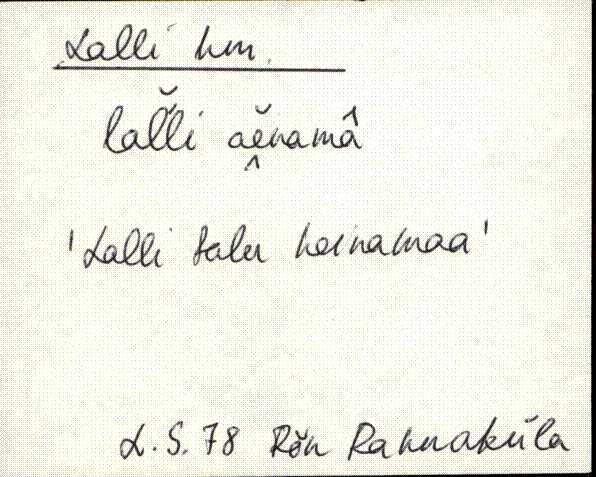 Lalli hm.
lal̆li aḙ̆namâ
'Lalli talu heinamaa'
L. S. 78 Rõn Rannaküla